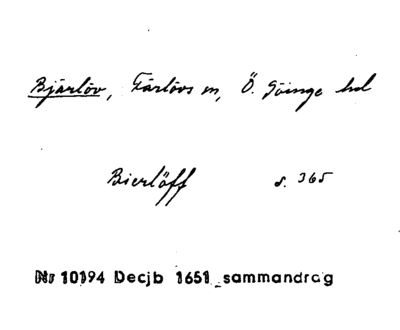 Bjärlöv, Färlövs sn, Ö. Göinge hd
Bierlöff s. 365
Nr 10194 Decjb 1651 sammandrag